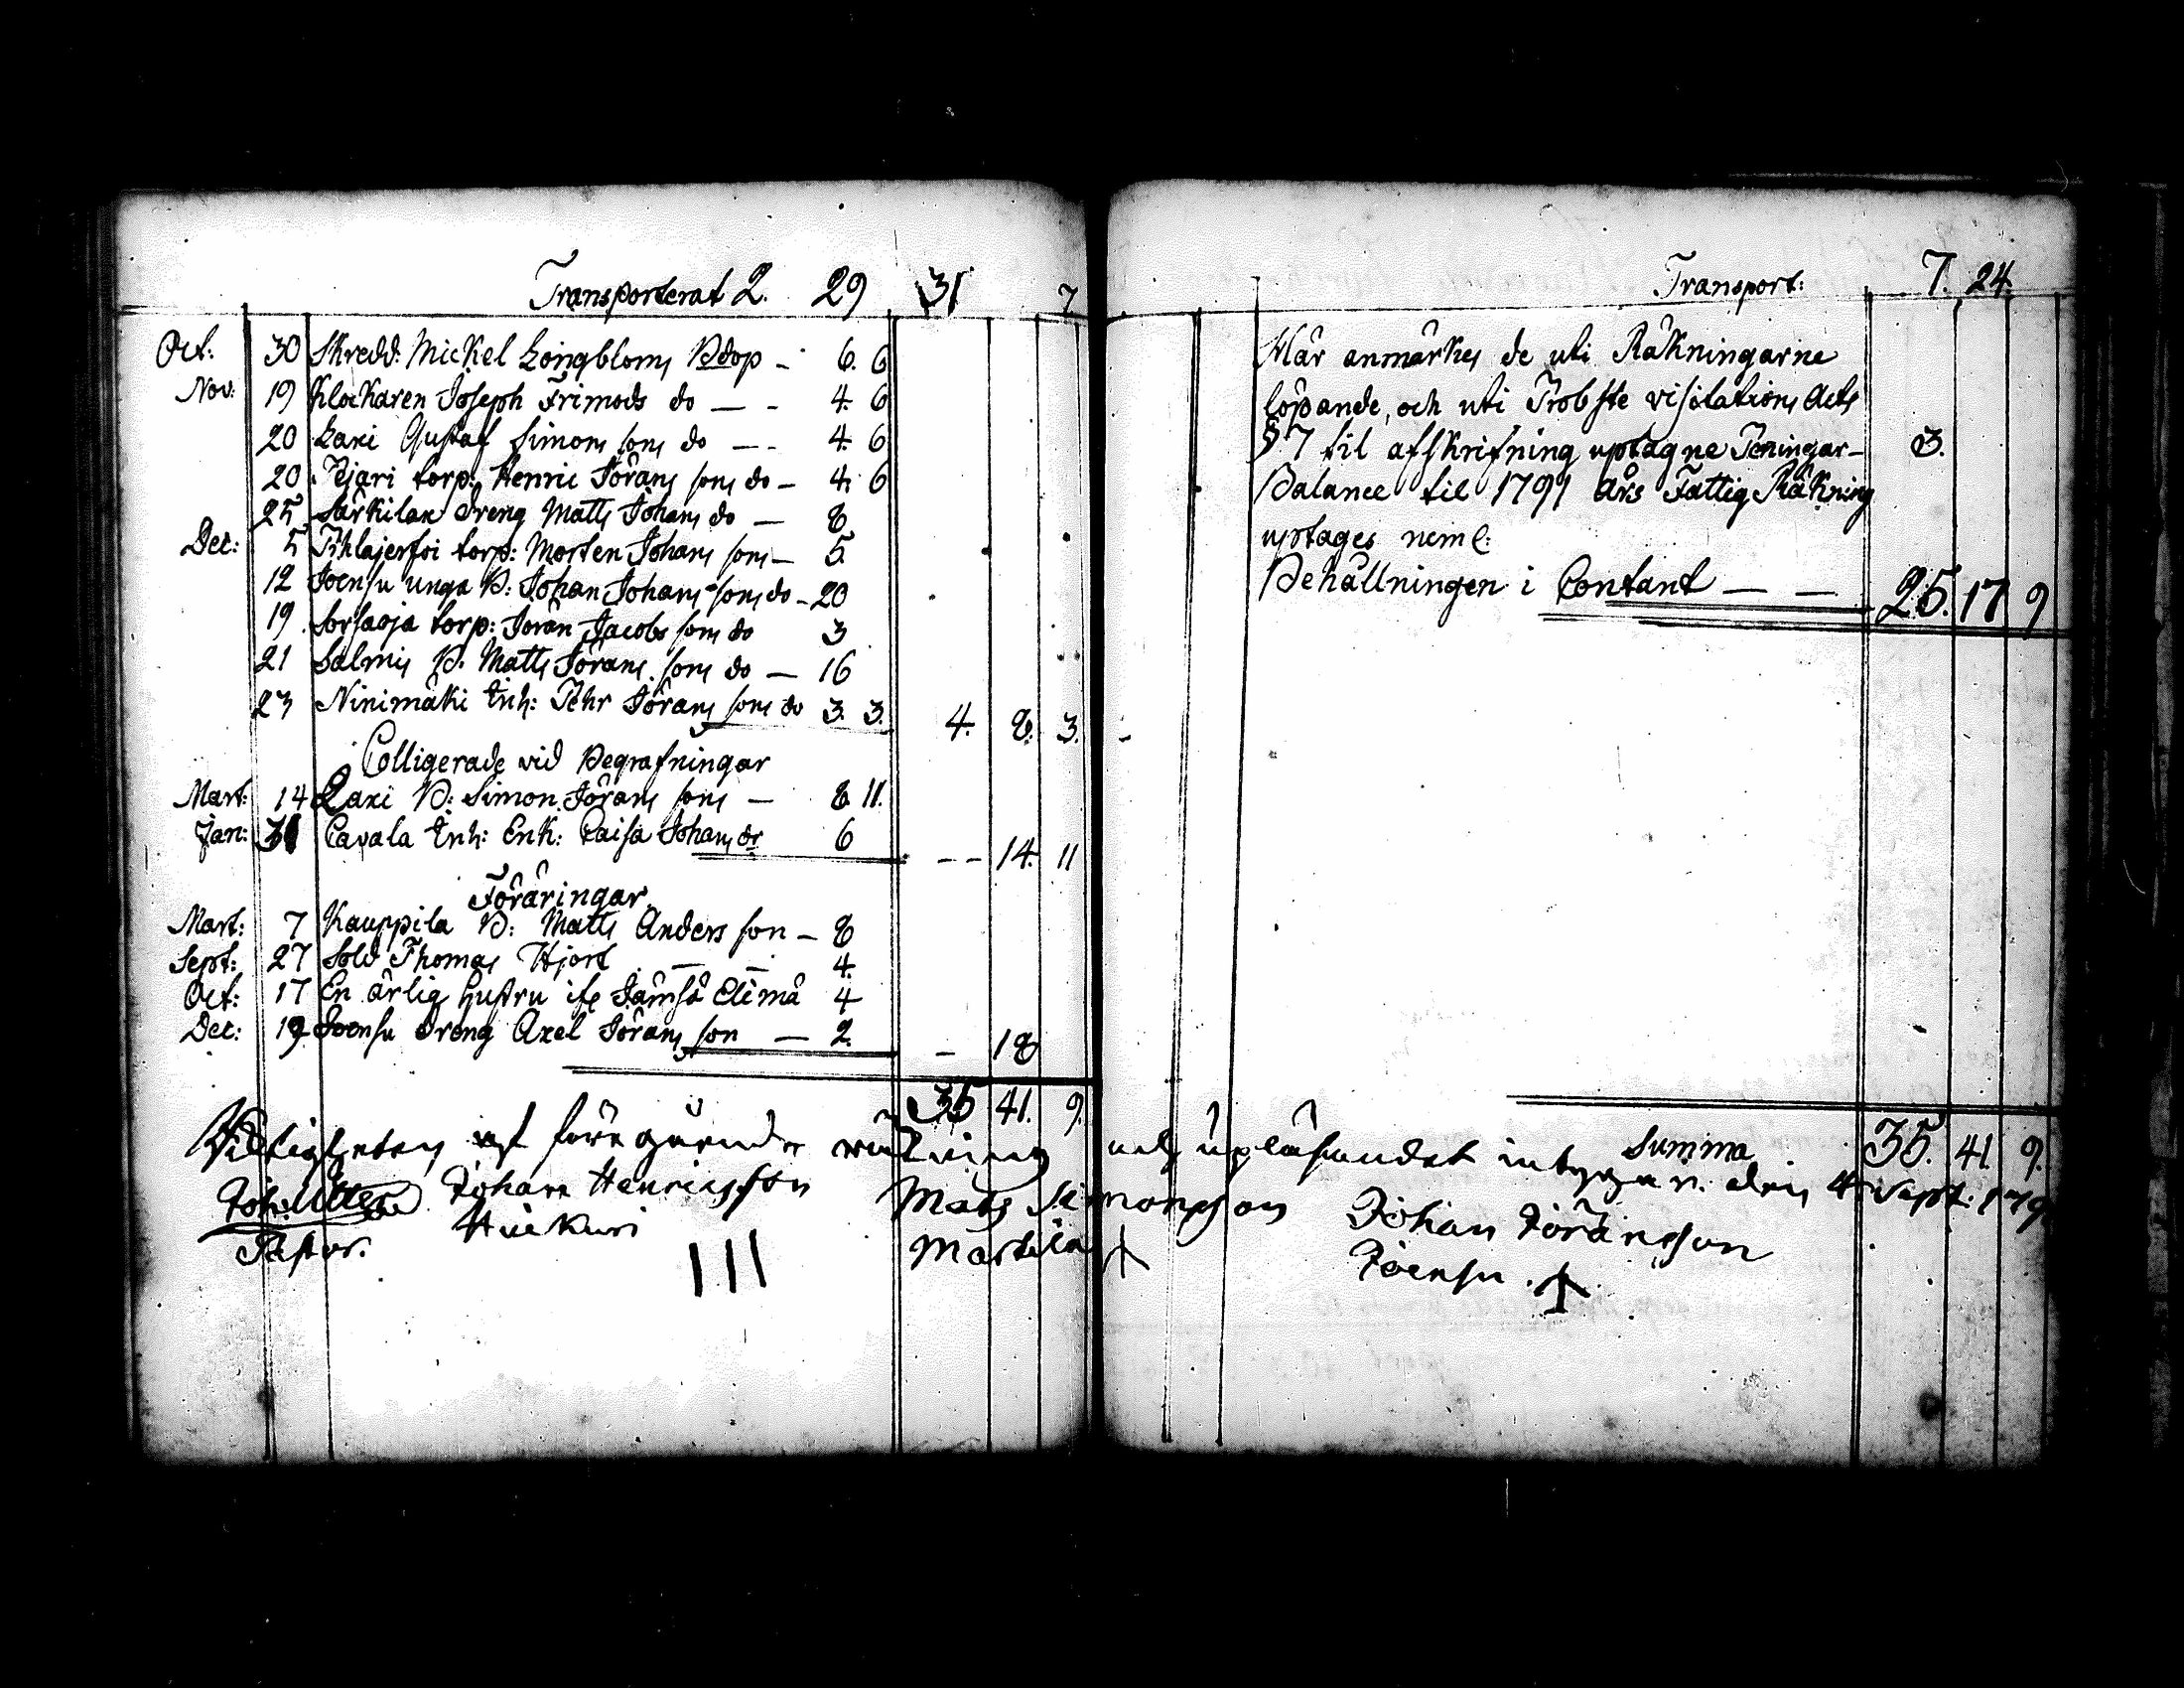 Transporterat 2. 29 31 7
Oct: 30 Skredd: Mickel Longbloms Bdop - 6. 6
Nov: 19 Klockaren Joseph Frimods do - - 4. 6
20 Laxi Gustaf Simons sons do - - 4. 6
20 Pejari torp: Henric Jörans sons do - 4. 6
25 Särkilax dreng Matts Johans do - 8
Dec: 5 Pihlajerfoi torp: Morten Johans sons - 5.
12 Joensu unga B: Johan Johans sons do - 20
19 Sorsaoja torp: Joran Jacobs sons do 3
21 Salmis B: Matts Jörans sons do - 16
23 Ninimäki Inh: Pehr Jörans sons do 3. 3. 4. 8. 3.
Colligerade vid Begrafningar
Mart: 14 Laxi B: Simon Jörans sons - 8 11.
Jan: 31 Cavala Inh: Enk: Caisa Johans dr 6 - - 14. 11
Föräringar
Mart: 7 Kauppila B: Matts Anders son - 8
Sept: 27 Sold Thomas Hjort - - 4.
Oct: 17 En ärlig hustru ifr Jämsä Elimä 4
Dec: 19 Joensu dreng Axel Jörans son - 2. - 18
35 41. 9.
Transport: 7. 24.
Här anmärkes de uti Räkningarne
löpande, och uti Probste visitations Acts
§ 7 til afskrifning uptagne Peningar - 3.
Balance til 1791 års Fattig Räkning
uptages neml:
Behållningen i Contant - - 25. 17 9
Summa 35. 41. 9.
Riktigheten af föregående räkning och upläsandet intygar den 4 Sept: 179
Joh: Utter Johan Henricsson Mats Simonsson Johan Jöransson
Pastor. Hiekuri III Martila Joensu